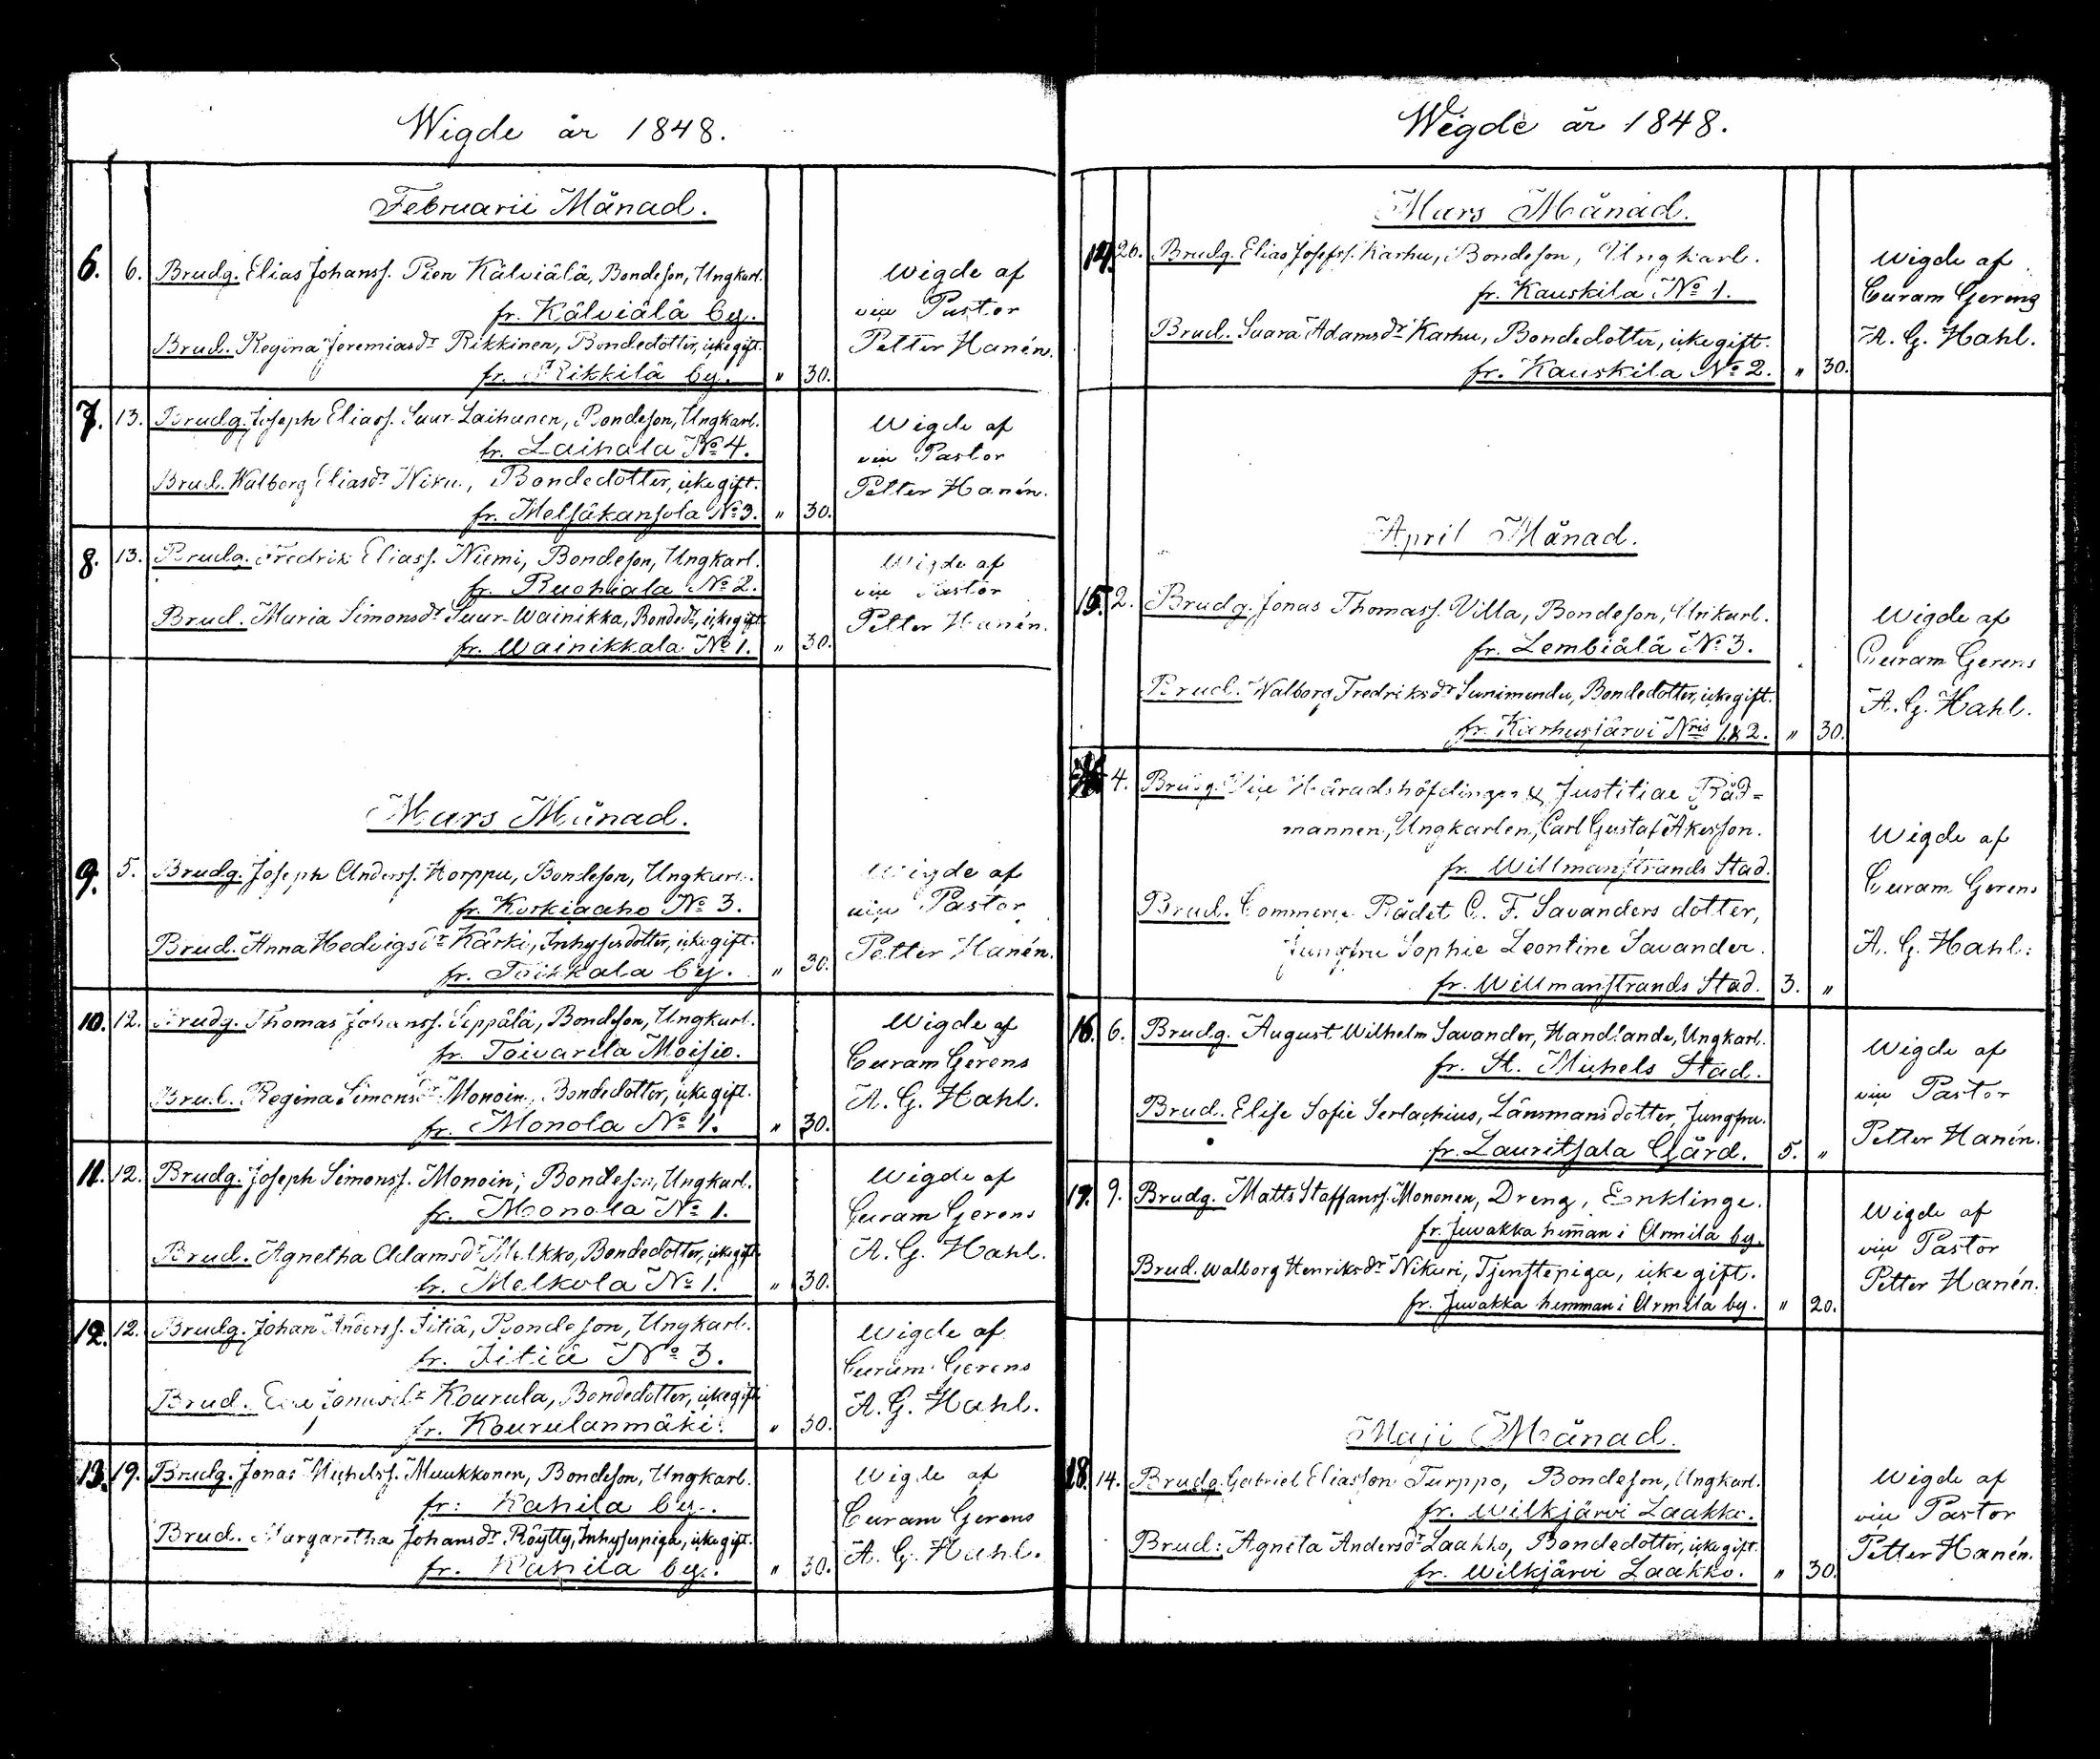 Wigde år 1848.
Februarii Månad.
6. 6. Brudg. Elias Johanss. Pien Kälviälä, Bondeson, Ungkarl.
fr. Kälviälä by.
Brud. Regina Jeremiasdr Rikkinen, Bondedotter, icke gift.
fr. Rikkilä by. " 30.
Wigde af
vice Pastor
Petter Hanén.
7. 13. Brudg. Joseph Eliass. Suur-Laihanen, Bondeson, Ungkarl.
fr. Laihala No 4.
Brud. Walborg Eliasdr Niku, Bondedotter, icke gift.
fr. Melsäkansola No 3. " 30.
Wigde af
vice Pastor
Petter Hanén.
8. 13. Brudg. Fredrik Eliass. Niemi, Bondeson, Ungkarl.
fr. Ruohiala No 2.
Brud. Maria Simonsdr Suur-Wainikka, Bondedr, icke gift.
fr. Wainikkala No 1. " 30.
Wigde af
vice Pastor
Petter Hanén.
Mars Månad.
9. 5. Brudg. Joseph Anderss. Horppu, Bondeson, Ungkarl.
fr. Korkiaaho No 3.
Brud. Anna Hedvigsdr Kärki, Inhysesdotter, icke gift.
fr. Toikkala by. " 30.
Wigde af
vice Pastor
Petter Hanén.
10. 12. Brudg. Thomas Johanss. Seppälä, Bondeson, Ungkarl.
fr. Toivarila Moisio.
Brud. Regina Simonsdr Monoin, Bondedotter, icke gift.
fr. Monola No 1. " 30.
Wigde af
Curam Gerens
A. G. Hahl.
11. 12. Brudg. Joseph Simonss. Monoin, Bondeson, Ungkarl.
fr. Monola No 1.
Brud. Agnetha Adamsdr Melkko, Bondedotter, icke gift.
fr. Melkola No 1. " 30.
Wigde af
Curam Gerens
A. G. Hahl.
12. 12. Brudg. Johan Anderss. Iitiä, Bondeson, Ungkarl.
fr. Iitiä No 3.
Brud. Eva Jonasdr Kourula, Bondedotter, icke gift
fr. Kourulanmäki. " 30.
Wigde af
Curam Gerens
A. G. Hahl.
13. 19. Brudg. Jonas Michelss. Muukkonen, Bondeson, Ungkarl.
fr. Kahila by.
Brud. Margaretha Johansdr Röytty, Inhysespiga, icke gift.
fr. Kahila by. " 30.
Wigde af
Curam Gerens
A. G. Hahl.
Wigde år 1848.
Mars Månad.
14. 26. Brudg. Elias Josefss. Karhu, Bondeson, Ungkarl.
fr. Kauskila No 1.
Brud. Saara Adamsdr Karhu, Bondedotter, icke gift.
fr. Kauskila No 2. " 30.
Wigde af
Curam Gerens
A. G. Hahl.
April Månad.
15. 2. Brudg. Jonas Thomass. Villa, Bondeson, Unkarl.
fr. Lembiälä No 3.
Brud. Walborg Fredriksdr Sunimendu, Bondedotter, icke gift.
fr. Karhusjärvi Nris 1 & 2. " 30.
Wigde af
Curam Gerens
A. G. Hahl.
4. Brudg. Vice Häradshöfdingen & Justitiae Råd=
mannen, Ungkarlen, Carl Gustaf Åkesson.
fr. Willmanstrands Stad.
Brud. Commerce Rådet C. F. Savanders dotter,
Jungfru Sophie Leontine Savander.
fr. Willmanstrands Stad. 3. "
Wigde af
Curam Gerens
A. G. Hahl.
16. 6. Brudg. August Wilhelm Savander, Handlande, Ungkarl.
fr. St. Michels Stad.
Brud. Elise Sofie Serlachius, Länsmansdotter, Jungfru.
fr. Lauritsala Gård. 5. "
Wigde af
vice Pastor
Petter Hanén.
17. 9. Brudg. Matts Staffanss. Mononen, Dreng, Enklinge.
fr. Juvakka heman i Armila by.
Brud. Walborg Henriksdr Nikuri, Tjenstepiga, icke gift.
fr. Juvakka hemman i Armila by. " 20.
Wigde af
vice Pastor
Petter Hanén.
Maji Månad.
18. 14. Brudg. Gabriel Eliasson Turppo, Bondeson, Ungkarl.
fr. Wilkjärvi Laakko.
Brud: Agneta Andersdr Laakko, Bondedotter, icke gift.
fr. Wilkjärvi Laakko. " 30.
Wigde af
vice Pastor
Petter Hanén.